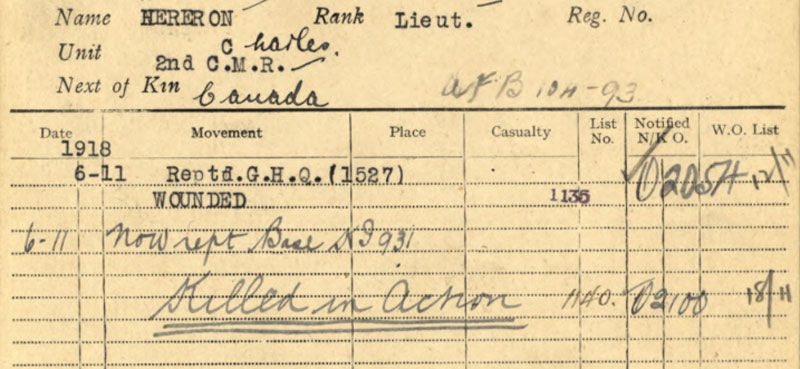 Name HERERON Rank Lieut. Reg. No.
Charles.
Unit 2nd C.M.R.
Next of Kin Canada AFB 104-93
Date Movement Place Casualty List No. Notified N/K O. W.O. List
1918
6-11 Reptd.G.H.Q.(1527) O2054 12/11
WOUNDED 1135
6-11 Now rept Base 931
Killed in Action 1140. O2100 18/11